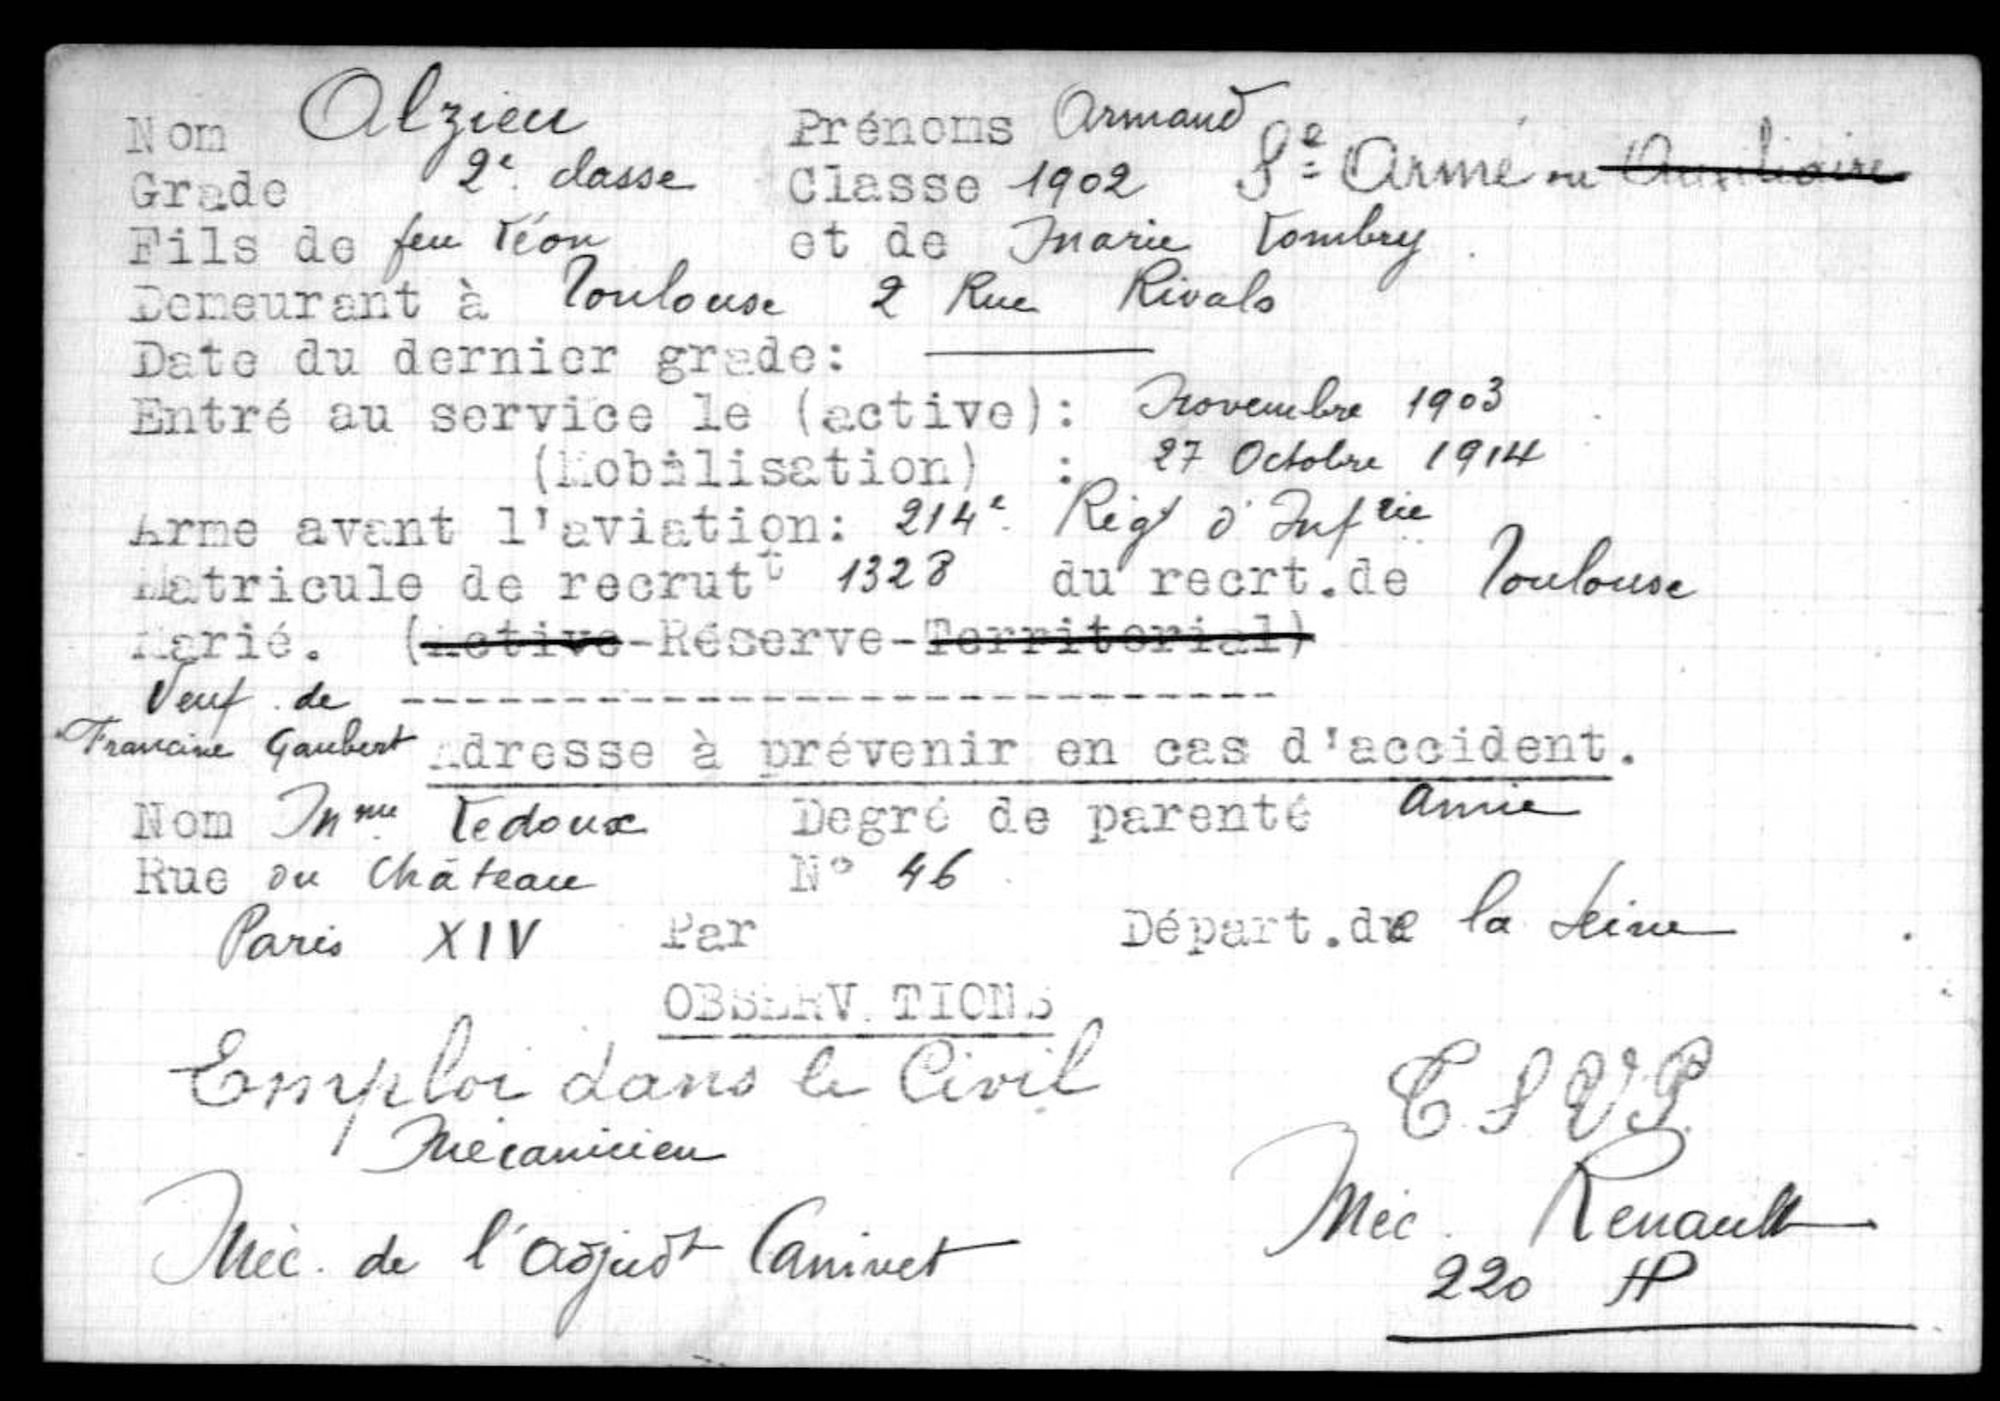 Nom Alzieu Prénoms Armand
Grade 2e classe Classe 1902 Sce Armé ou Auxiliaire
Fils de feu Léon et de Marie Lombry
Demeurant à Toulouse 2 Rue Rivals
Date du dernier grade: ———
Entré au service le (active): Novembre 1903
(Mobilisation) : 27 Octobre 1914
Arme avant l'aviation: 214e Régt d'Infrie
Matricule de recrutt 1328 du recrt.de Toulouse
Marié. (Active-Réserve-Territorial)
Veuf de ----------------------------
Francine Gaubert Adresse à prévenir en cas d'accident.
Nom Mme Ledoux Degré de parenté Amie
Rue du Château N° 46
Paris XIV Par Départ.de la Seine
OBSERVATIONS
Emploi dans le Civil
Mécanicien
T S V P.
Méc. de l'adjudt Canivet
Mec. Renault
220 HP